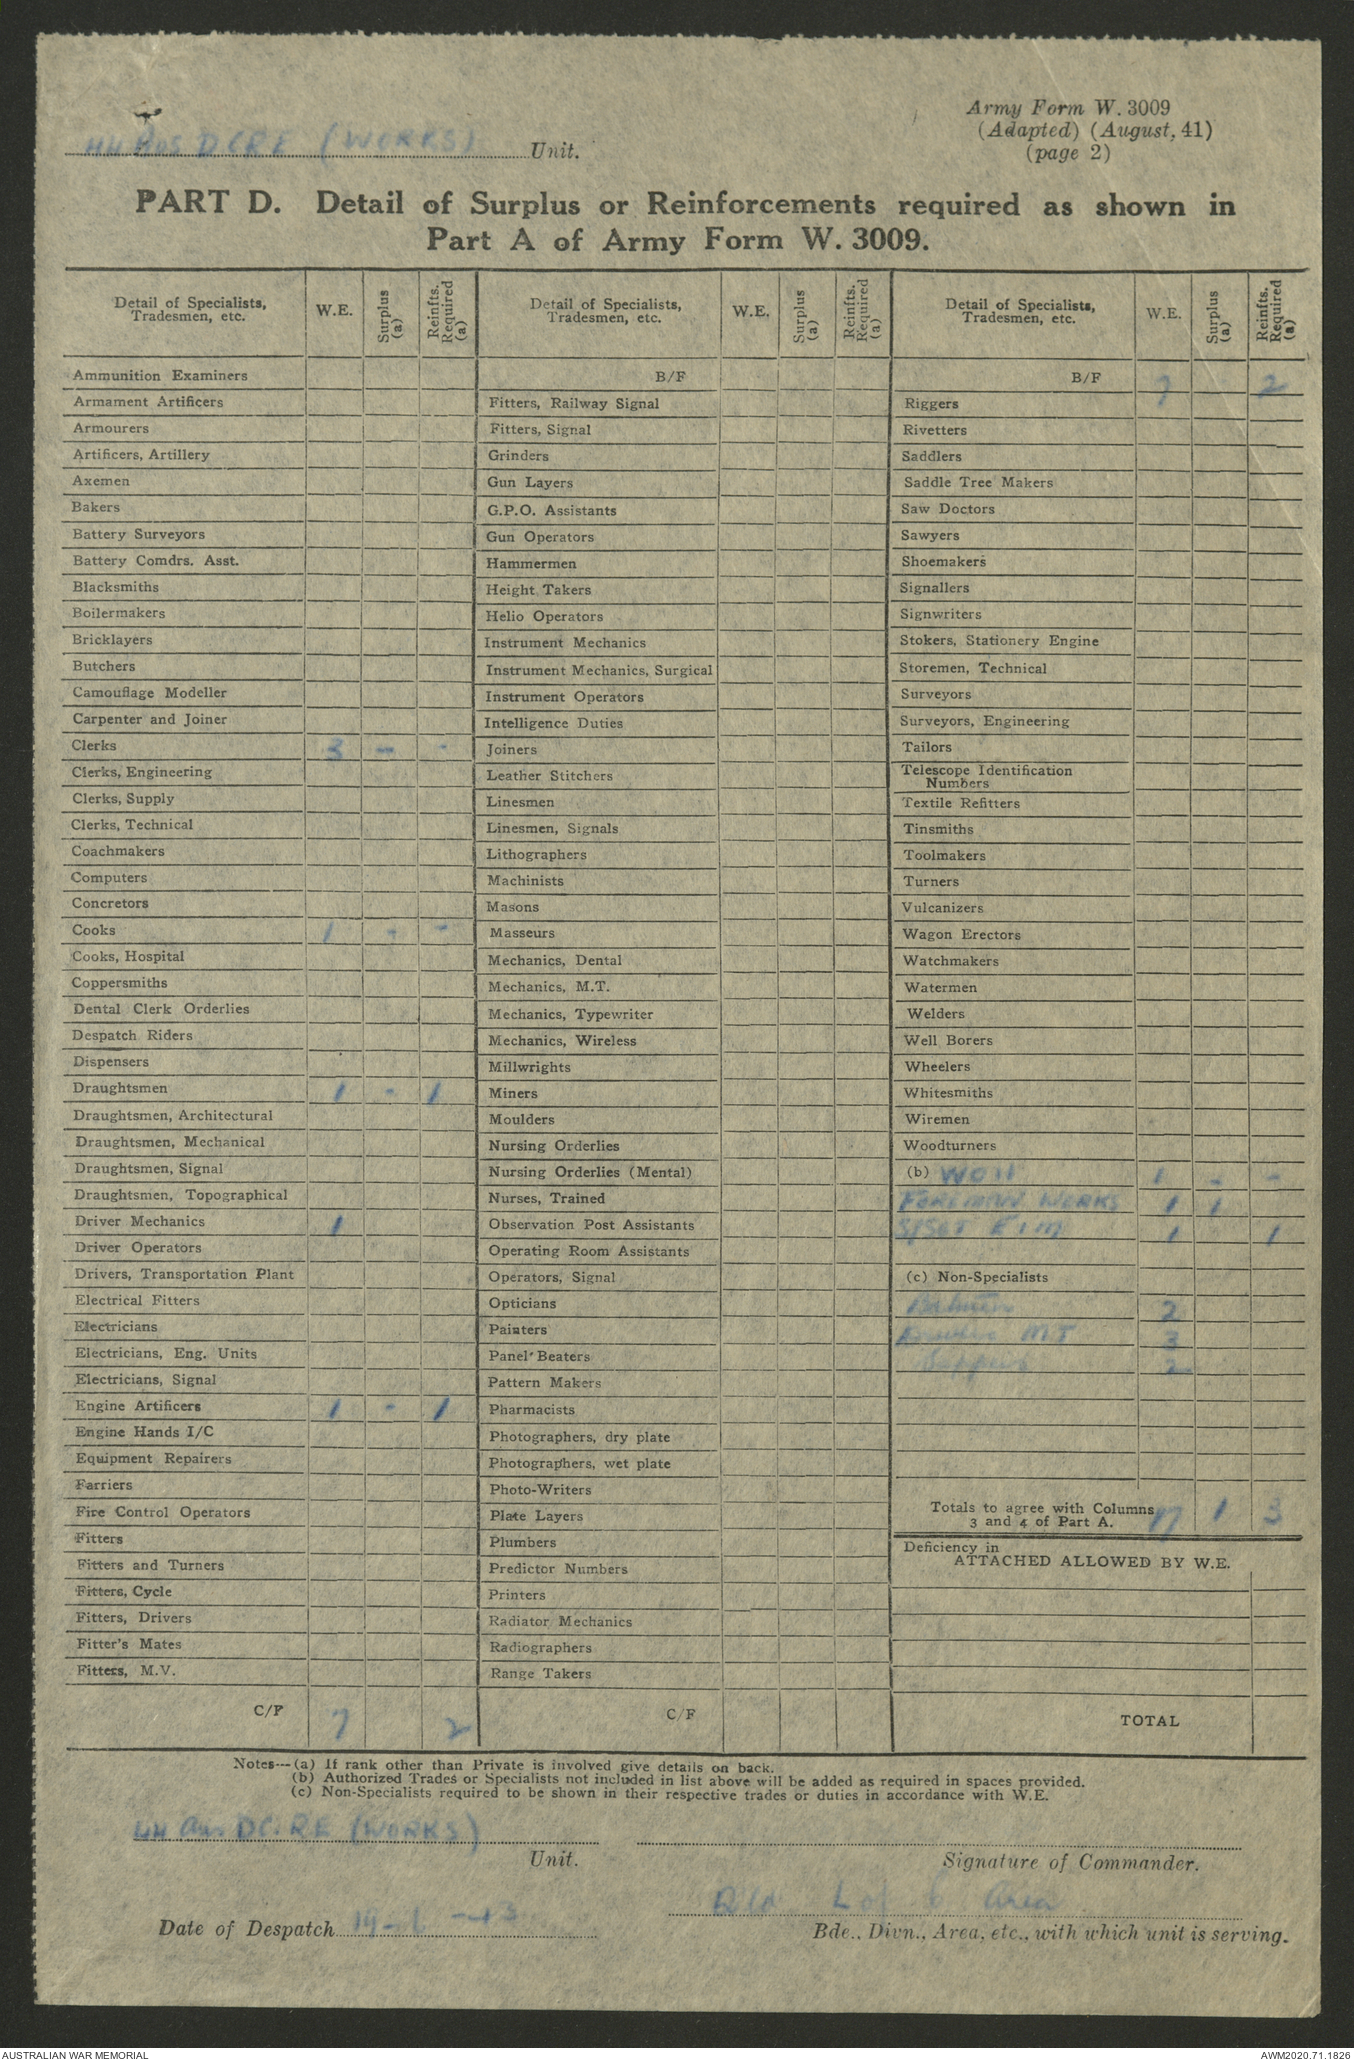 Army Form W. 3009
(Adapted) (August, 41)
(page 2)
44 Aus DCRE (WORKS) Unit.
PART D. Detail of Surplus or Reinforcements required as shown in
Part A of Army Form W. 3009.
Detail of Specialists, Tradesmen, etc. W.E. Surplus (a) Reinfts. Required (a)
Ammunition Examiners
Armament Artificers
Armourers
Artificers, Artillery
Axemen
Bakers
Battery Surveyors
Battery Comdrs. Asst.
Blacksmiths
Boilermakers
Bricklayers
Butchers
Camouflage Modeller
Carpenter and Joiner
Clerks 3 - -
Clerks, Engineering
Clerks, Supply
Clerks, Technical
Coachmakers
Computers
Concretors
Cooks 1 - -
Cooks, Hospital
Coppersmiths
Dental Clerk Orderlies
Despatch Riders
Dispensers
Draughtsmen 1 - 1
Draughtsmen, Architectural
Draughtsmen, Mechanical
Draughtsmen, Signal
Draughtsmen, Topographical
Driver Mechanics 1
Driver Operators
Drivers, Transportation Plant
Electrical Fitters
Electricians
Electricians, Eng. Units
Electricians, Signal
Engine Artificers 1 - 1
Engine Hands I/C
Equipment Repairers
Farriers
Fire Control Operators
Fitters
Fitters and Turners
Fitters, Cycle
Fitters, Drivers
Fitter's Mates
Fitters, M.V.
C/F 7 2
Detail of Specialists, Tradesmen, etc. W.E. Surplus (a) Reinfts. Required (a)
B/F
Fitters, Railway Signal
Fitters, Signal
Grinders
Gun Layers
G.P.O. Assistants
Gun Operators
Hammermen
Height Takers
Helio Operators
Instrument Mechanics
Instrument Mechanics, Surgical
Instrument Operators
Intelligence Duties
Joiners
Leather Stitchers
Linesmen
Linesmen, Signals
Lithographers
Machinists
Masons
Masseurs
Mechanics, Dental
Mechanics, M.T.
Mechanics, Typewriter
Mechanics, Wireless
Millwrights
Miners
Moulders
Nursing Orderlies
Nursing Orderlies (Mental)
Nurses, Trained
Observation Post Assistants
Operating Room Assistants
Operators, Signal
Opticians
Painters
Panel Beaters
Pattern Makers
Pharmacists
Photographers, dry plate
Photographers, wet plate
Photo-Writers
Plate Layers
Plumbers
Predictor Numbers
Printers
Radiator Mechanics
Radiographers
Range Takers
C/F
Detail of Specialists, Tradesmen, etc. W.E. Surplus (a) Reinfts. Required (a)
B/F 7 2
Riggers
Rivetters
Saddlers
Saddle Tree Makers
Saw Doctors
Sawyers
Shoemakers
Signallers
Signwriters
Stokers, Stationery Engine
Storemen, Technical
Surveyors
Surveyors, Engineering
Tailors
Telescope Identification
Numbers
Textile Refitters
Tinsmiths
Toolmakers
Turners
Vulcanizers
Wagon Erectors
Watchmakers
Watermen
Welders
Well Borers
Wheelers
Whitesmiths
Wiremen
Woodturners
(b) WOII 1 - -
FOREMAN WORKS 1 1
S/SGT E & M 1 1
(c) Non-Specialists
Batmen 2
Drivers MT 3
Sappers 2
Totals to agree with Columns
3 and 4 of Part A. 17 1 3
Deficiency in
ATTACHED ALLOWED BY W.E.
TOTAL
Notes---(a) If rank other than Private is involved give details on back.
(b) Authorized Trades or Specialists not included in list above will be added as required in spaces provided.
(c) Non-Specialists required to be shown in their respective trades or duties in accordance with W.E.
44 Aus DCRE (WORKS)
Unit.
Signature of Commander.
L of C Area
Date of Despatch
Bde., Divn., Area, etc., with which unit is serving.
AUSTRALIAN WAR MEMORIAL
AWM2020.71.1826